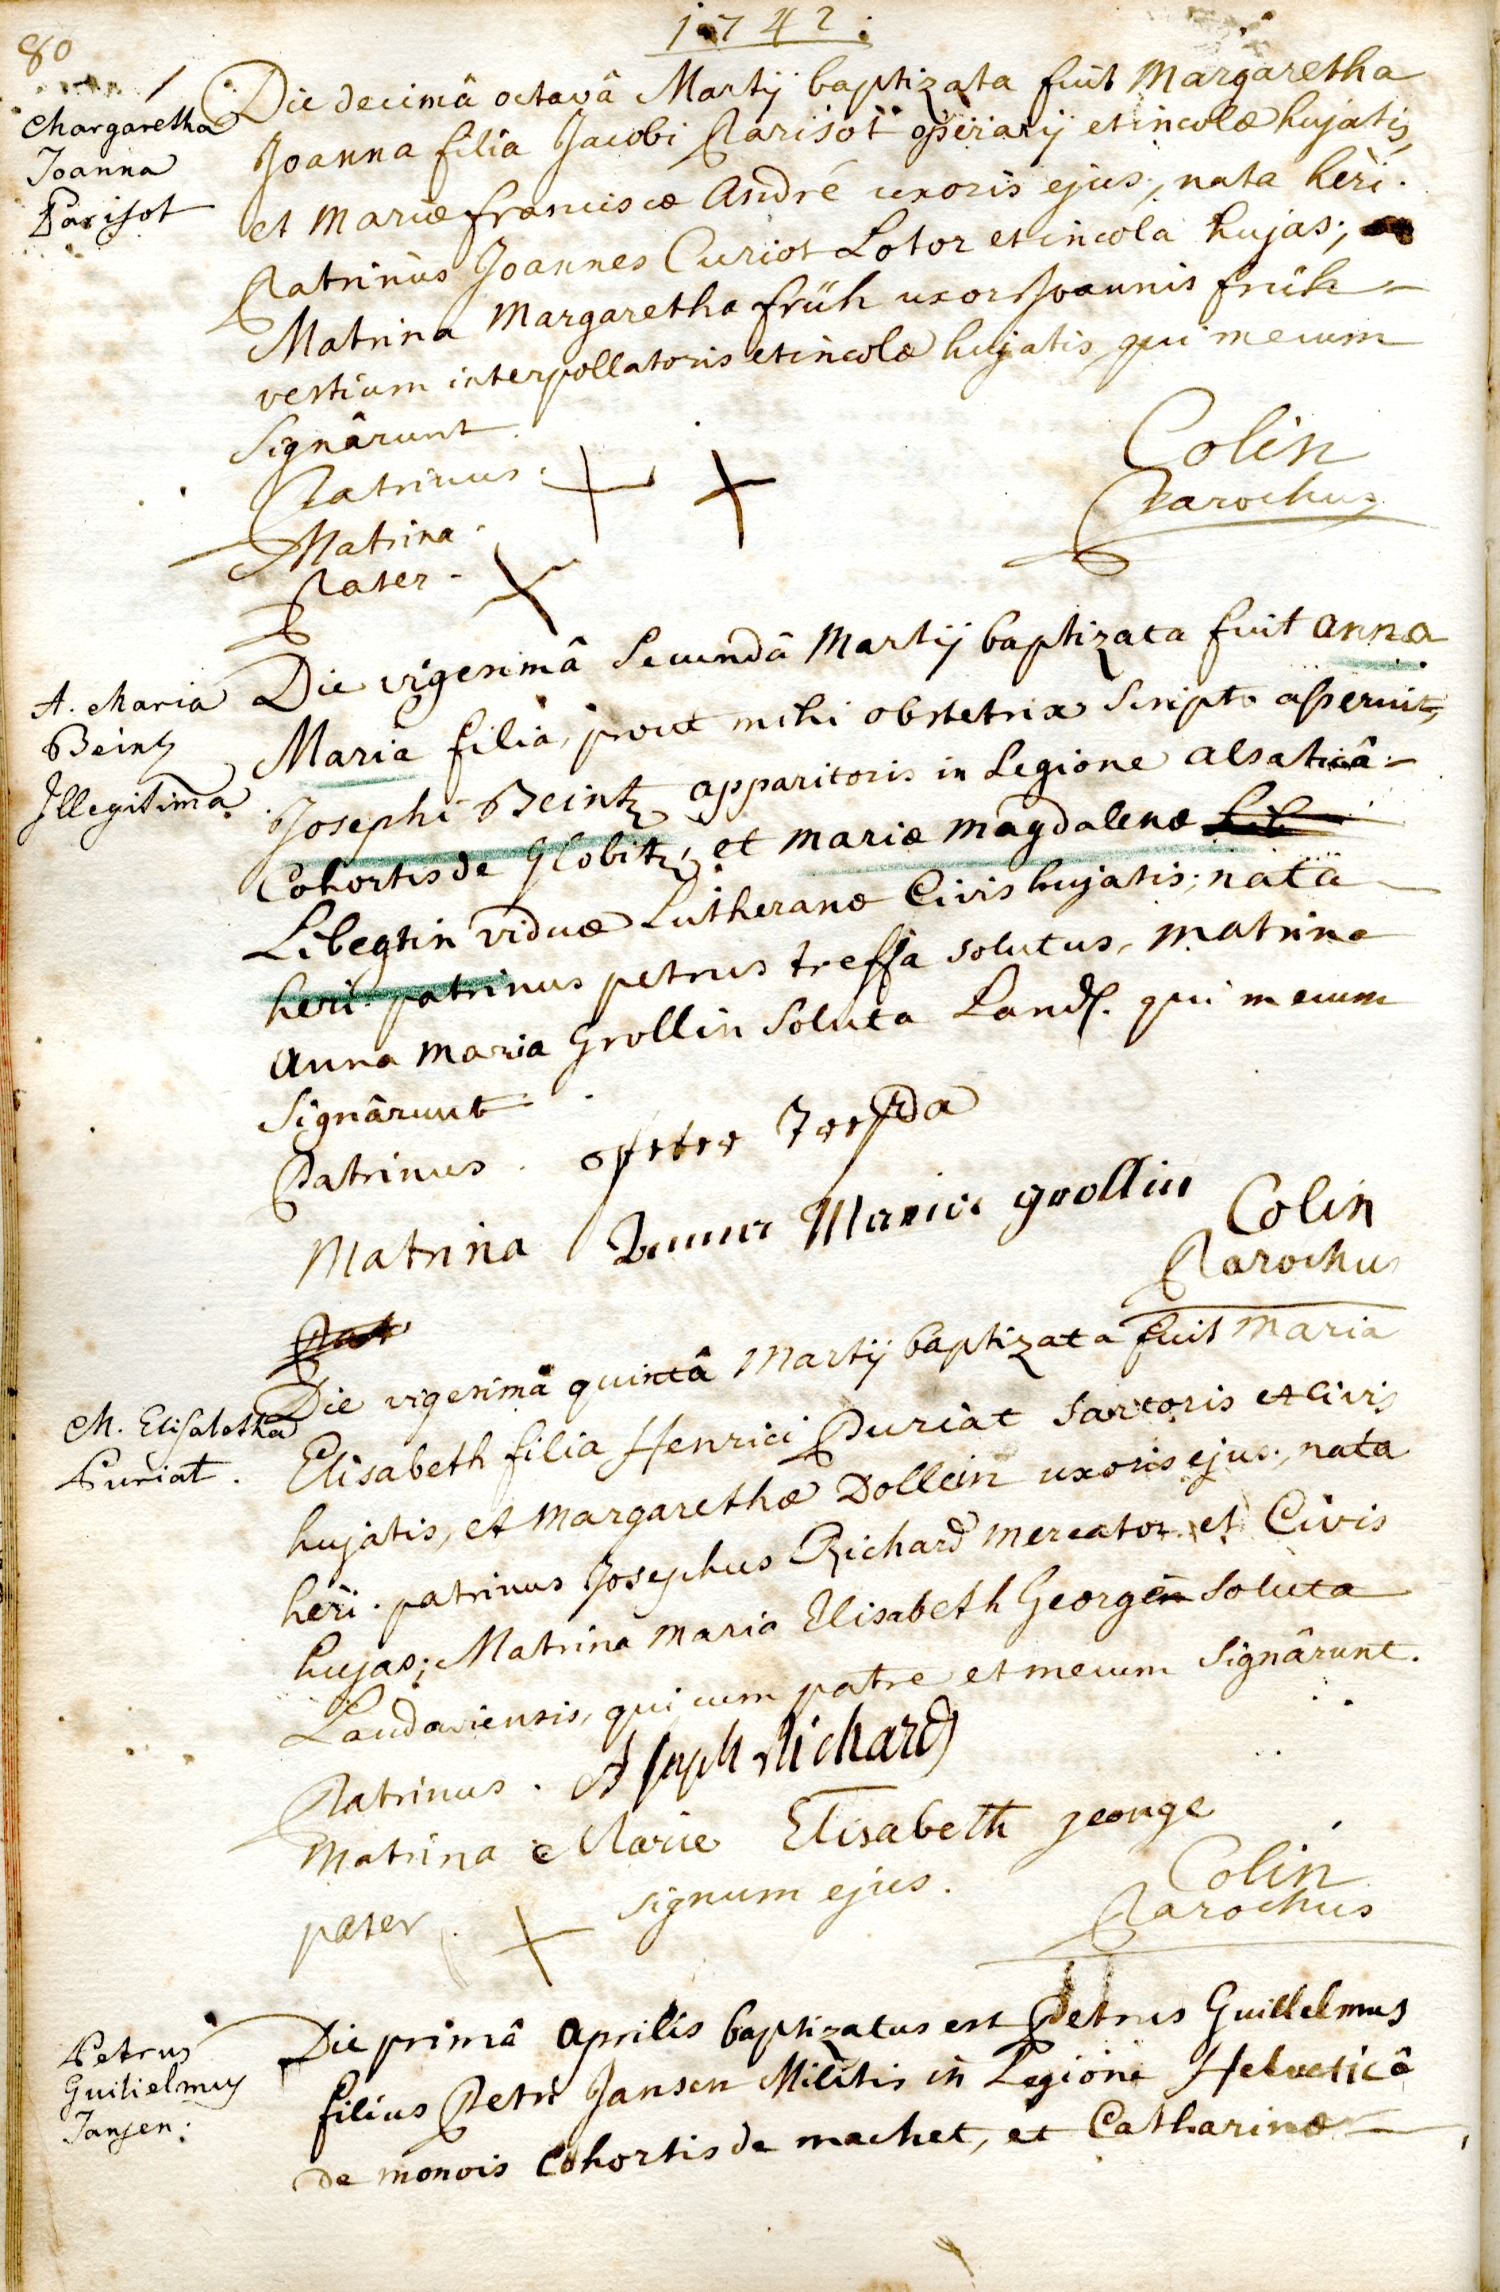 80
1742.
Margaretha
Joanna
Parisot
Die decimâ octavâ Martij baptizata fuit Margaretha
Joanna filia Jacobi Parisot operarij et incolæ hujatis,
et Mariæ franciscæ André uxoris ejus; nata heri.
Patrinus Joannes Curiot Lotor et incola hujas;
Matrina Margaretha früh uxor Joannis früh
vestium interpollatoris et incolæ hujatis, qui mecum
signârunt.
Patrinus.
Matrina.
Pater.
Colin
Parochus
A. Maria
Beintz
Illegitima.
Die vigesimâ Secundâ Martij baptizata fuit anna
Maria filia, prout mihi obstetrix scripto asseruit,
Josephi Beintz, apparitoris in Legione alsaticâ
Cohortis de Globitz, et mariæ magdalenæ Lib
Libegtin viduæ Lutheranæ Civis hujatis; nata
heri. patrinus petrus tressa solutus, matrina
anna maria Grollin Soluta Land. qui mecum
Signârunt
Patrinus. peter
Matrina Anna Maria grollin
Colin
Parochus
Pat
M. Elisabetha
Puriat.
Die vigesimâ quintâ Martij baptizata fuit maria
Elisabeth filia Henrici Puriat Sartoris et Civis
hujatis, et margarethæ Dollein uxoris ejus; nata
heri. patrinus Josephus Richard mercator et Civis
hujas; Matrina maria Elisabeth Georgin Soluta
Landaviensis, qui cum patre et mecum Signârunt.
Patrinus. Joseph Richard
Matrina Marie Elisabeth george
pater signum ejus.
Colin
Parochus
Petrus
Guilielmus
Jansen.
Die primâ aprilis baptizatus est Petrus Guillelmus
filius Petri Jansen Militis in Legione Helveticâ
de monois Cohortis de machet, et Catharinæ